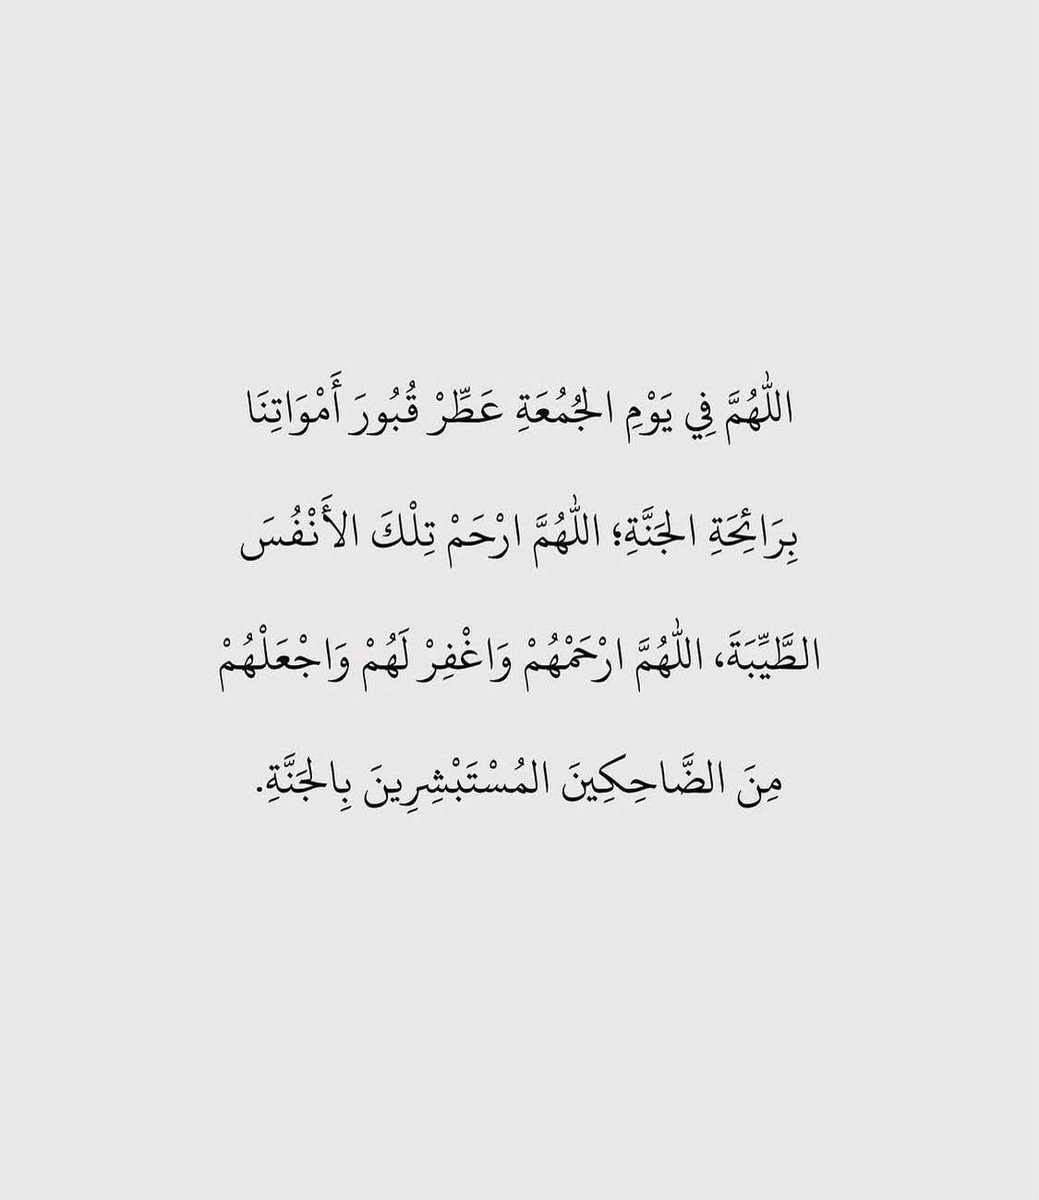 اللَّهُمَّ فِي يَوْمِ الجُمُعَةِ عَطِّرْ قُبُورَ أَمْوَاتِنَا
بِرَائِحَةِ الجَنَّةِ؛ اللَّهُمَّ ارْحَمْ تِلْكَ الأَنْفُسَ
الطَّيِّبَةَ، اللَّهُمَّ ارْحَمْهُمْ وَاغْفِرْ لَهُمْ وَاجْعَلْهُمْ
مِنَ الضَّاحِكِينَ المُسْتَبْشِرِينَ بِالجَنَّةِ.